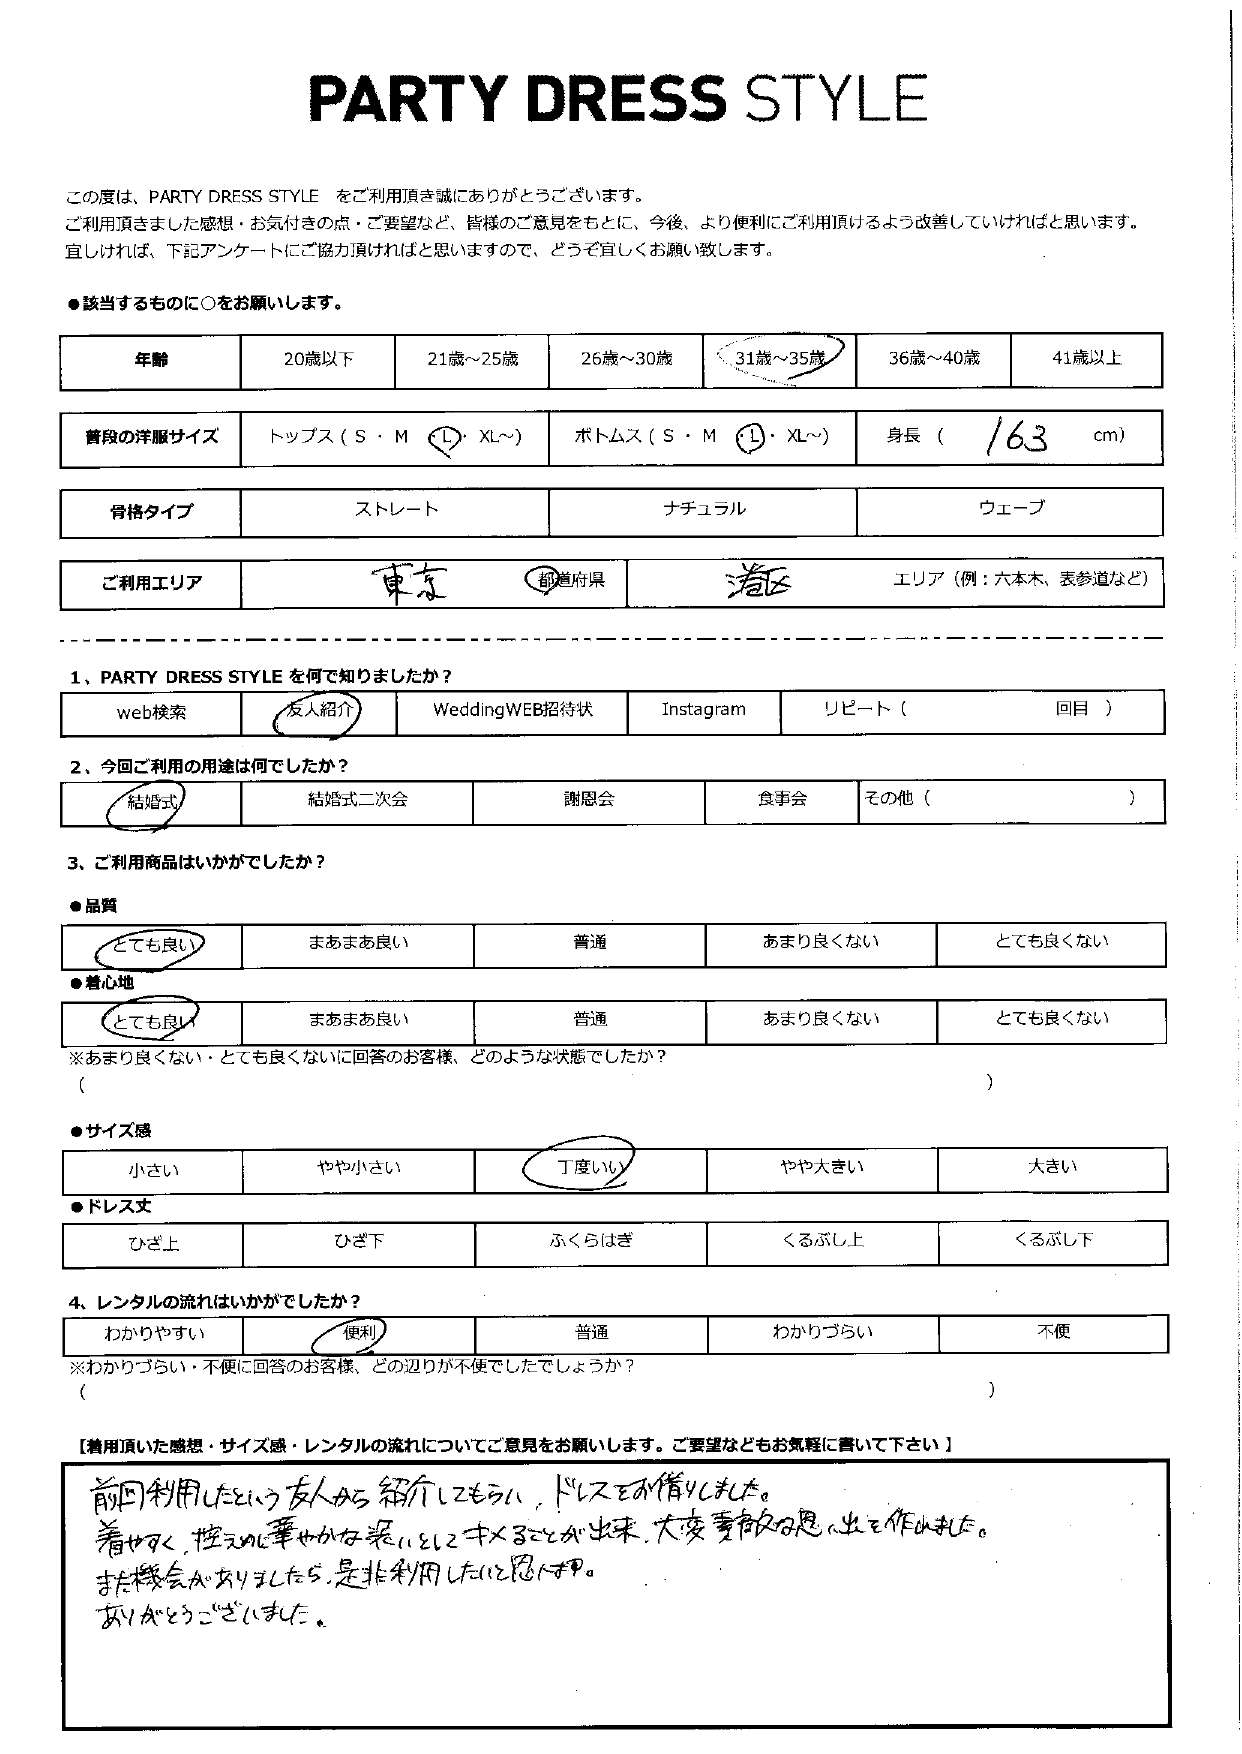 PARTY DRESS STYLE
この度は、PARTY DRESS STYLE をご利用頂き誠にありがとうございます。
ご利用頂きました感想・お気付きの点・ご要望など、皆様のご意見をもとに、今後、より便利にご利用頂けるよう改善していければと思います。
宜しければ、下記アンケートにご協力頂ければと思いますので、どうぞ宜しくお願い致します。
●該当するものに○をお願いします。
年齢 20歳以下 21歳～25歳 26歳～30歳 31歳～35歳 36歳～40歳 41歳以上
普段の洋服サイズ トップス ( S ・ M ・L・ XL～) ボトムス ( S ・ M ・L・ XL～) 身長 ( 163 cm)
骨格タイプ ストレート ナチュラル ウェーブ
ご利用エリア 東京 都道府県 港区 エリア（例：六本木、表参道など）
1、PARTY DRESS STYLE を何で知りましたか？
web検索 友人紹介 WeddingWEB招待状 Instagram リピート（ 回目 ）
2、今回ご利用の用途は何でしたか？
結婚式 結婚式二次会 謝恩会 食事会 その他（ ）
3、ご利用商品はいかがでしたか？
●品質
とても良い まあまあ良い 普通 あまり良くない とても良くない
●着心地
とても良い まあまあ良い 普通 あまり良くない とても良くない
※あまり良くない・とても良くないに回答のお客様、どのような状態でしたか？
( )
●サイズ感
小さい やや小さい 丁度いい やや大きい 大きい
●ドレス丈
ひざ上 ひざ下 ふくらはぎ くるぶし上 くるぶし下
4、レンタルの流れはいかがでしたか？
わかりやすい 便利 普通 わかりづらい 不便
※わかりづらい・不便に回答のお客様、どの辺りが不便でしたでしょうか？
( )
【着用頂いた感想・サイズ感・レンタルの流れについてご意見をお願いします。ご要望などもお気軽に書いて下さい 】
前回利用したという友人から紹介してもらい、ドレスをお借りしました。
着やすく、控えめに華やかな装いとしてキメることが出来、大変素敵な思い出を作れました。
また機会がありましたら、是非利用したいと思います。
ありがとうございました。